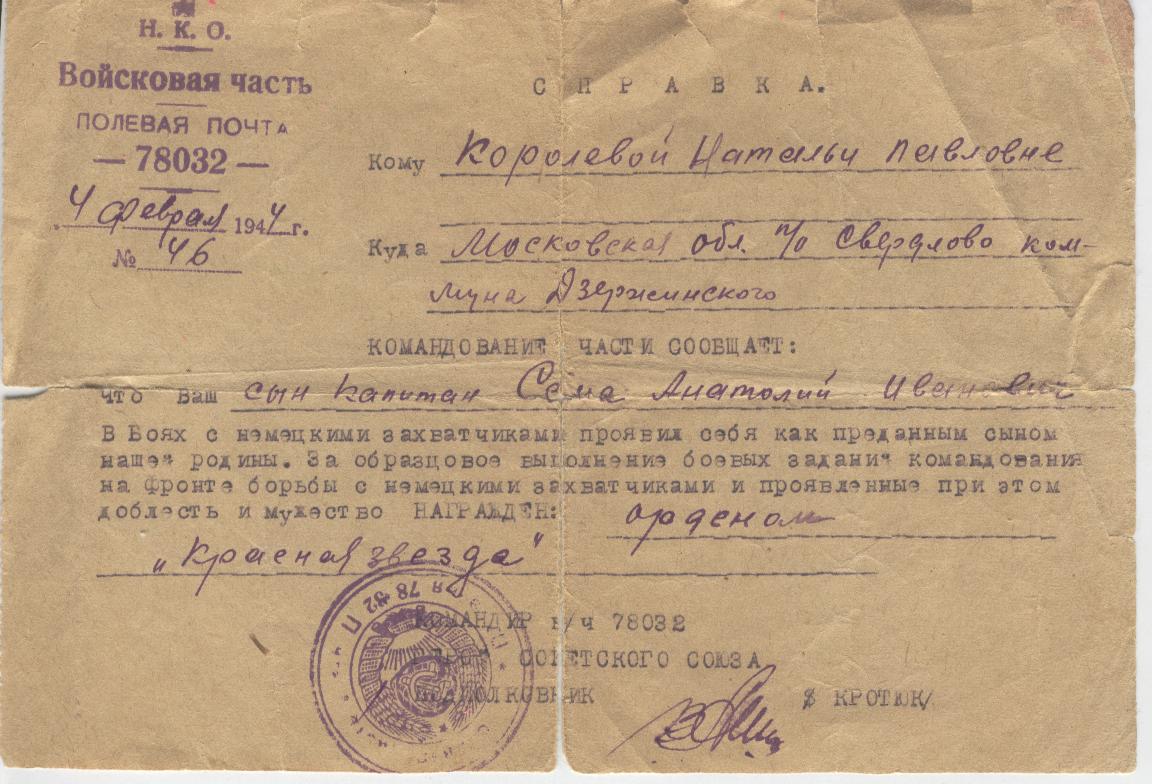 Н. К. О.
Войсковая часть
ПОЛЕВАЯ ПОЧТА
— 78032 —
4 феврал 1944 г.
№ 46
СПРАВКА.
Кому Королевой Натальи Павловне
Куда Московская обл. п/о Свердлово ком-
муна Дзержинского
КОМАНДОВАНИЕ ЧАСТИ СООБЩАЕТ:
что Ваш сын капитан Сёма Анатолий Иванович
В Боях с немецкими захватчиками проявил себя как преданным сыном
нашей родины. За образцовое выполнение боевых заданий командования
на фронте борьбы с немецкими захватчиками и проявленные при этом
доблесть и мужество НАГРАЖДЕН: орденом
„Красная звезда"
КОМАНДИР в/ч 78032
ГЕРОЙ СОВЕТСКОГО СОЮЗА
ПОДПОЛКОВНИК / КРОТЮК/